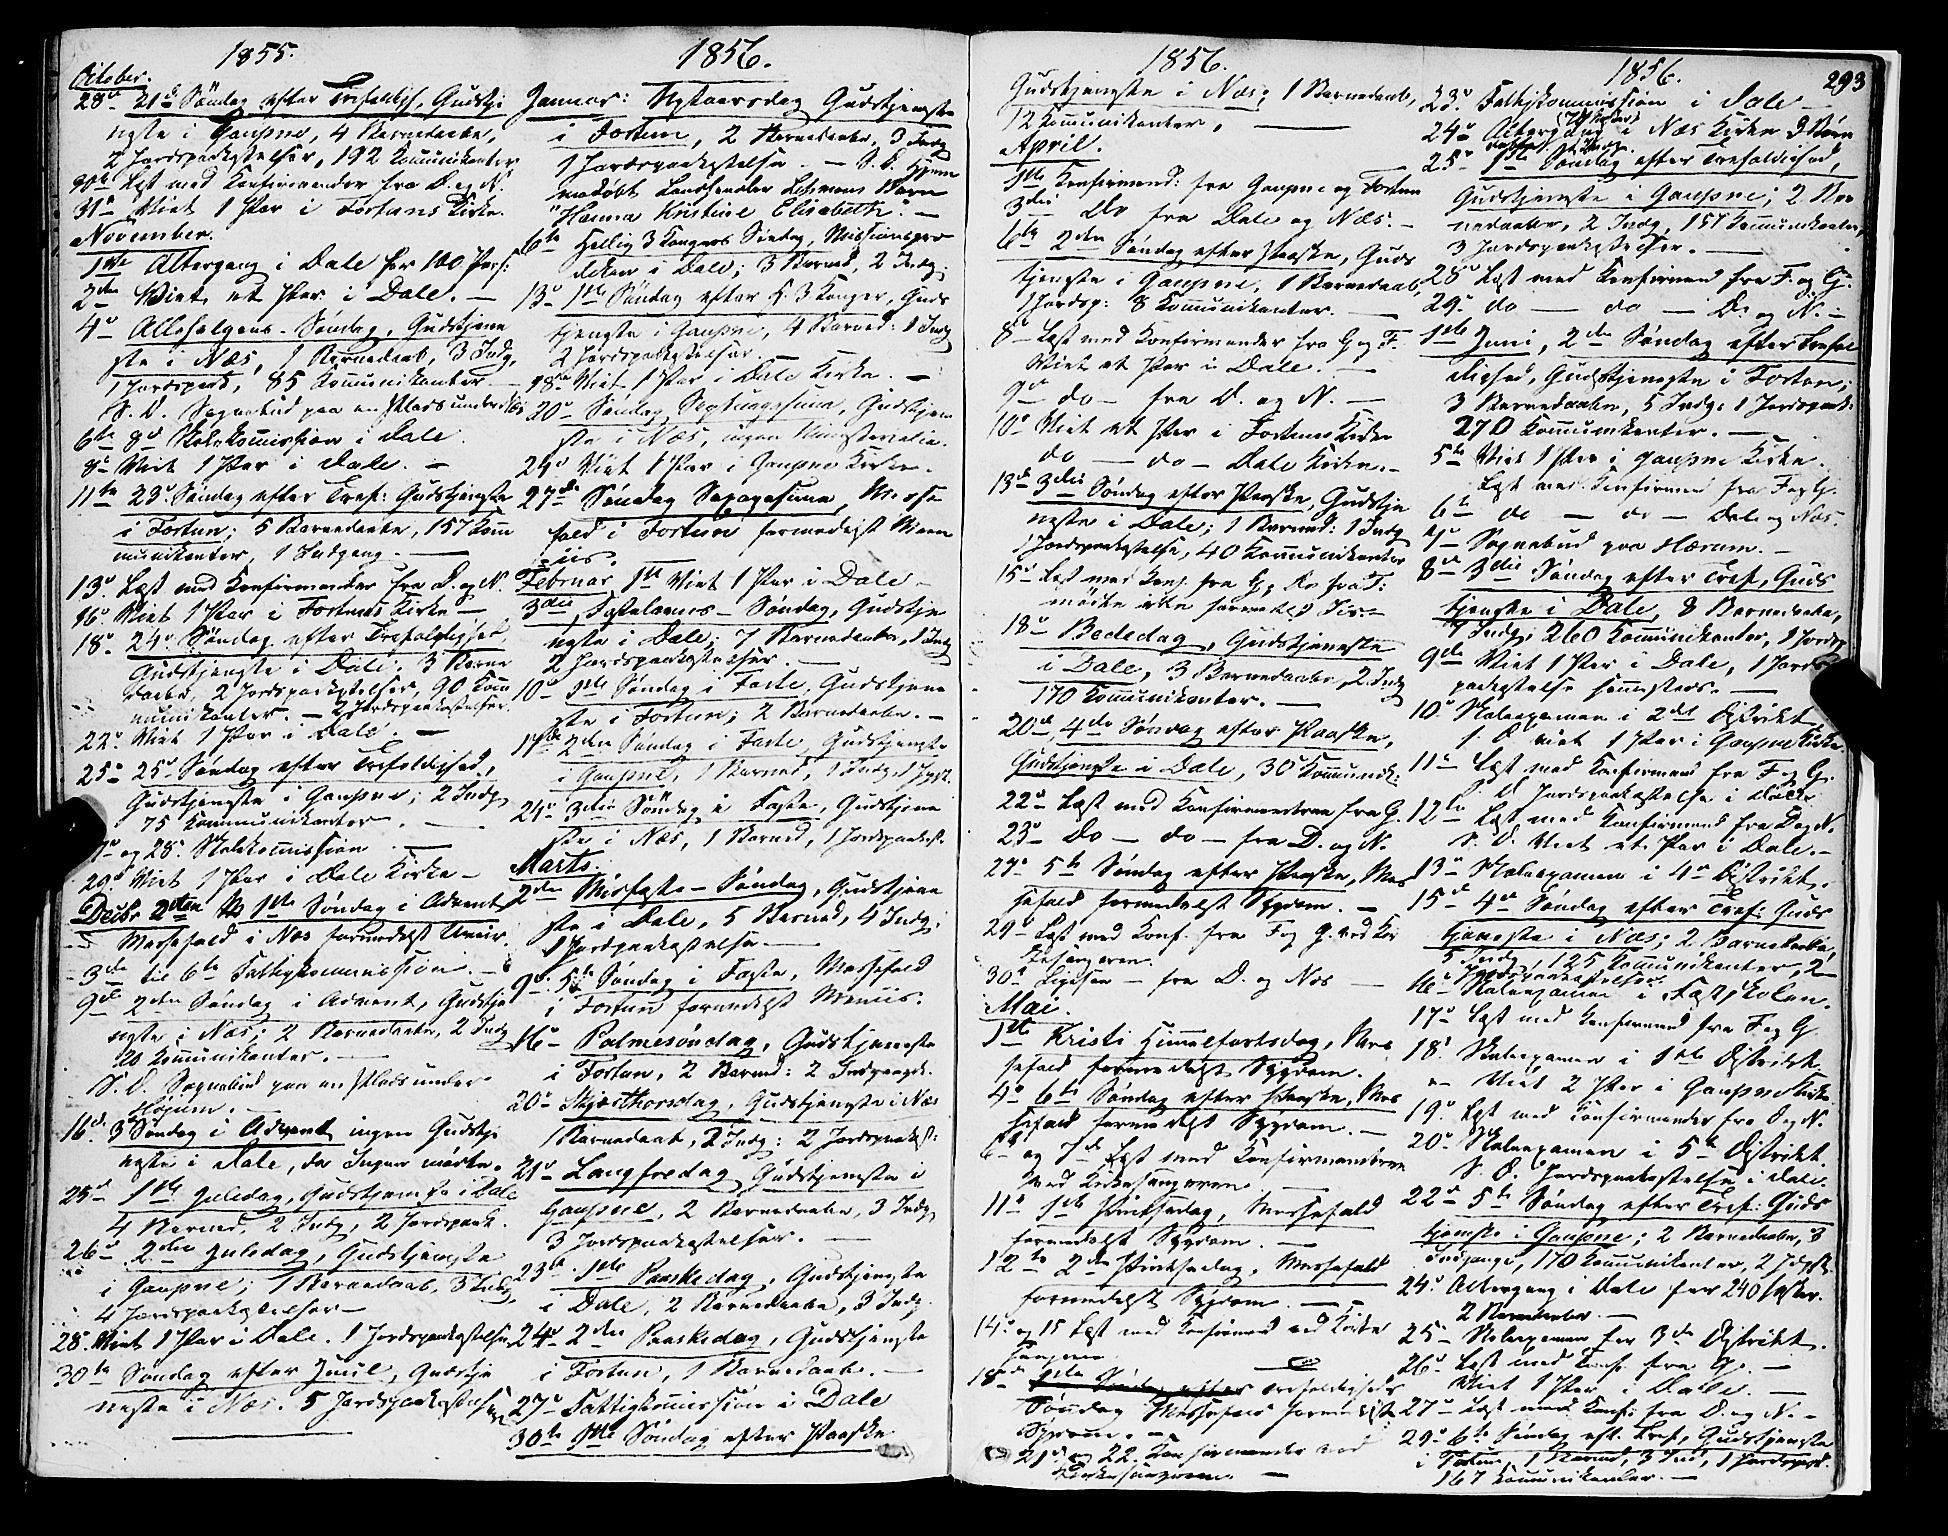 1855.
October.
28de 21de Søndag efter Trefoldigh, Gudstje
neste i Gaupne, 4 Barnedaabe,
2 Jordspaakastelser, 192 Kommunikanter
30te Læst med Konfirmander fra D. og N.
31te Viet 1 Par i Fortuns Kirke.
November.
1ste Altergang i Dale for 100 Pers:
2den Viet et Par i Dale. —
4de Allehelgens-Søndag, Gudstjene
ste i Næs, 1 Barnedaab, 3 Indg,
1 Jordspaak, 85 Kommunikanter —
S. D. Sognebud paa en Plads under
6te 8de Skolekommission i Dale.
8de Viet 1 Par i Dale. —
11te 23de Søndag efter Tref: Gudstjeneste
i Fortun; 5 Barnedaabe, 157 Kom
munikanter, 1 Indgang. —
13de Læst med Konfirmander fra D. og N.
16de Viet 1 Par i Fortuns Kirke —
18de 24de Søndag efter Trefoldighed,
Gudstjeneste i Dale. 3 Barne
daabe, 2 Jordspaakastelser, 90 Kom
munikanter. — 2 Jordspaakastelser.
22de Viet 1 Par i Dale. —
25de 25de Søndag efter Trefoldighed,
Gudstjeneste i Gaupne; 2 Indg,
75 Kommunikanter. —
og 28de Skolekommission —
29de Viet 1 Par i Dale Kirke —
Decbr 2den 1ste Søndag i Advent
Messefald i Næs formedelst Uveir.
3die til 6te Fattigkommission. —
9de 2den Søndag i Advent, Gudstje
neste i Næs; 2 Barnedaabe, 2 Indg
20 Kommunikanter. —
S. D. Sognebud paa en Plads under
Høyum. —
16de 3die Søndag i Advent ingen Gudstje
neste i Dale, da Ingen mødte.
25de 1ste Juledag, Gudstjeneste i Dale
4 Barned, 2 Indg, 2 Jordspaak.
26de 2den Juledag, Gudstjeneste
i Gaupne; 1 Barnedaab, 3 Indg,
4 Jordspaakastelser —
28. Viet 1 Par i Dale. 1 Jordspaakastelse
30te Søndag efter Juul, Gudstje
neste i Næs. 5 Jordspaakastelser
1856.
Januar: Nytaarsdag Gudstjeneste
i Fortun, 2 Barnedaabe, 3 Indg
1 Jordspaakastelse. — S. D. Hjemme
døbt Landhandler Lehmans Barn
"Hanna Kristine Elisabeth". —
6te Hellig 3 Kongers Søndag, Missionspræ
diken i Dale; 3 Barned, 2 Indg.
13de 1ste Søndag efter H. 3 Konger, Guds
tjeneste i Gaupne, 4 Barned: 1 Indg
2 Jordspaakastelser. —
18de Viet 1 Par i Dale Kirke. —
20de Søndag Septuagesima, Gudstjene
ste i Næs, ingen Ministerialia.
24de Viet 1 Par i Gaupne Kirke.
27de Søndag Sexagesima, Messe
fald i Fortun formedelst Meen
iis. —
Februar 1ste Viet 1 Par i Dale —
3die, Fastelavns-Søndag, Gudstje
neste i Dale; 7 Barnedaabe, 1 Indg
2 Jordspaakastelser. —
10de 1ste Søndag i Faste, Gudstjene
ste i Fortun; 2 Barnedaabe. —
17de 2den Søndag i Faste, Gudstjeneste
i Gaupne, 1 Barned, 1 Indg, 1 Jgst.
24de 3die Søndag i Faste, Gudstjene
ste i Næs, 1 Barned, 1 Jordspaakst.
Marts.
2den Midfaste-Søndag, Gudstjene
ste i Dale, 5 Barned, 4 Indg,
1 Jordspaakastelse —
9de 5te Søndag i Faste, Messefald
i Fortun formedelst Meniis.
16de Palmesøndag, Gudstjeneste
i Fortun, 2 Barned: 2 Indgange.
20de Skjærthorsdag, Gudstjeneste i Næs
1 Barnedaab, 2 Indg: 2 Jordspaakst:
21de Langfredag Gudstjeneste i
Gaupne, 2 Barnedaabe, 3 Indg,
3 Jordspaakastelser. —
23de 1ste Paaskedag, Gudstjeneste
i Dale, 2 Barnedaabe, 3 Indg.
24de 2den Paaskedag, Gudstjeneste
i Fortun, 1 Barnedaab. —
27de Fattigkommission i Dale
30te 1ste Søndag efter Paaske
1856.
Gudstjeneste i Næs; 1 Barnedaab,
12 Kommunikanter, —
April.
1ste Konfirmand: fra Gaupne og Fortun
3die Do fra Dale og Næs. —
6te 2den Søndag efter Paaske, Guds
tjeneste i Gaupne, 1 Barnedaab,
1 Jordsp: 8 Kommunikanter. —
8de Læst med Konfirmander fra G og F.
Viet et Par i Dale. —
9de do — fra D. og N. —
10de Viet et Par i Fortuns Kirke
do — do — Dale Kirke. —
13de 3die Søndag efter Paaske, Gudstje
neste i Dale; 1 Barned: 1 Indg
1 Jordspaakastelse, 40 Kommunikanter
15de Læst med Konf. fra G,
mødte ikke formedelst
18de Bededag, Gudstjeneste
i Dale, 3 Barnedaabe, 2 Indg
170 Kommunikanter. —
20de 4de Søndag efter Paaske,
Gudstjeneste i Dale, 30 Kommunik:
22de Læst med Konfirmanterne fra G.
23de Do — do — fra D. og N.
27de 5te Søndag efter Paaske, Mes
sefald formedelst Sygdom. —
29de Læst med Konf. fra F og G. ved Kir
kesangeren.
30te Ligesaa — fra D. og Næs —
Mai.
1ste Kristi Himmelfartsdag, Mes
sefald formedelst Sygdom.
4de 6te Søndag efter Paaske, Mes
sefald formedelst Sygdom. —
6te og 7de Læst med Konfirmanterne
ved Kirkesangeren —
11te 1ste Pinksedag, Messefald
formedelst Sygdom. —
12te 2den Pinksedag, Messefald
formedelst Sygdom. —
14de og 15 Læst med Konfirmand ved Kirke
sangeren
18de Trefoldigheds
Søndag Messefald formedelst
Sygdom. —
21de og 22. Konfirmander ved
Kirkesangeren —
1856.
293
23de Fattigkommission i Dale —
24de Altergang i Næs Kirke 2 Børn
døbte, 1 Indg.
25de 1ste Søndag efter Trefoldighed,
Gudstjeneste i Gaupne; 2 Bar
nedaabe, 2 Indg, 157 Kommunikanter,
3 Jordspaakastelser. —
28de Læst med Konfirmand fra F. og G.
29de do — do — D. og N. —
1ste Juni, 2den Søndag efter Trefol
dighed, Gudstjeneste i Fortun;
3 Barnedaabe, 5 Indg: 1 Jordspaak:
270 Kommunikanter. —
5te Viet 1 Par i Gaupne Kirke.
Læst med Konfirmand fra F og G.
6te do — do — Dale og Næs.
7de Sognebud paa Hærum. —
8de 3die Søndag efter Tref, Guds
tjeneste i Dale, 8 Barnedaabe,
7 Indg, 260 Kommunikanter, 1 Jordsp
9de Viet 1 Par i Dale, 1 Jords
paakastelse sammesteds. —
10de Skoleexamen i 2det Distrikt
S. D. viet 1 Par i Gaupne Kirke
11te Læst med Konfirmand fra F og G.
S. D. Jordspaakastelse i Dale
12te Læst med Konfirmand fra D og N.
S. D. Viet et Par i Dale. —
13de Skoleexamen i 4de Distrikt.
15de 4de Søndag efter Tref: Guds
tjeneste i Næs; 2 Barnedaabe,
5 Indg, 125 Kommunikanter, 2
Jordspaakastelser.
16de Skoleexamen i Fastskolen.
17de Læst med Konfirmand fra F og G.
18de Skoleexamen i 1ste Distrikt.
— Viet 2 Par i Gaupne Kirke
19de Læst med Konfirmander fra D og N.
20de Skoleexamen i 5te Distrikt.
S. D. Jordspaakastelse i Dale.
22de 5te Søndag efter Tref: Guds
tjeneste i Gaupne; 2 Barnedaabe, 3
Indgange, 170 Kommunikanter, 2 Jdspk.
24de Altergang i Dale for 240 Gjæster.
2 Barnedaabe. —
25de Skoleexamen for 3die Distrikt.
26de Læst med Konf. fra G. —
Viet 1 Par i Dale. —
27de Læst med Konf: fra D. og N. —
29de 6te Søndag eft. Tref, Gudstjeneste
i Fortun, 1 Barned, 3 Ind, 1 Jordspaak.
167 Kommunikanter. —